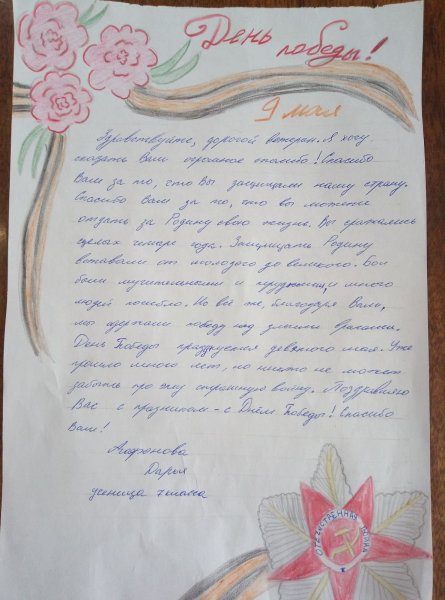 День победы!
9 мая
Здравствуйте, дорогой ветеран. Я хочу
сказать Вам огромное спасибо! Спасибо
Вам за то, что Вы защищали нашу страну.
Спасибо Вам за то, что вы можете
отдать за Родину свою жизнь. Вы сражались
целых четыре года. Защищать Родину
вставали от молодого до великого. Бои
были мучительными и трудными, и много
людей погибло. Но всё же, благодаря Вам,
мы одержали победу над злыми врагами.
День Победы празднуется девятого мая. Уже
прошло много лет, но никто не может
забыть про эту страшную войну. Поздравляю
Вас с праздником - с Днём Победы! Спасибо
Вам!
Дарья
ученица 7 класса
ОТЕЧЕСТВЕННАЯ ВОЙНА